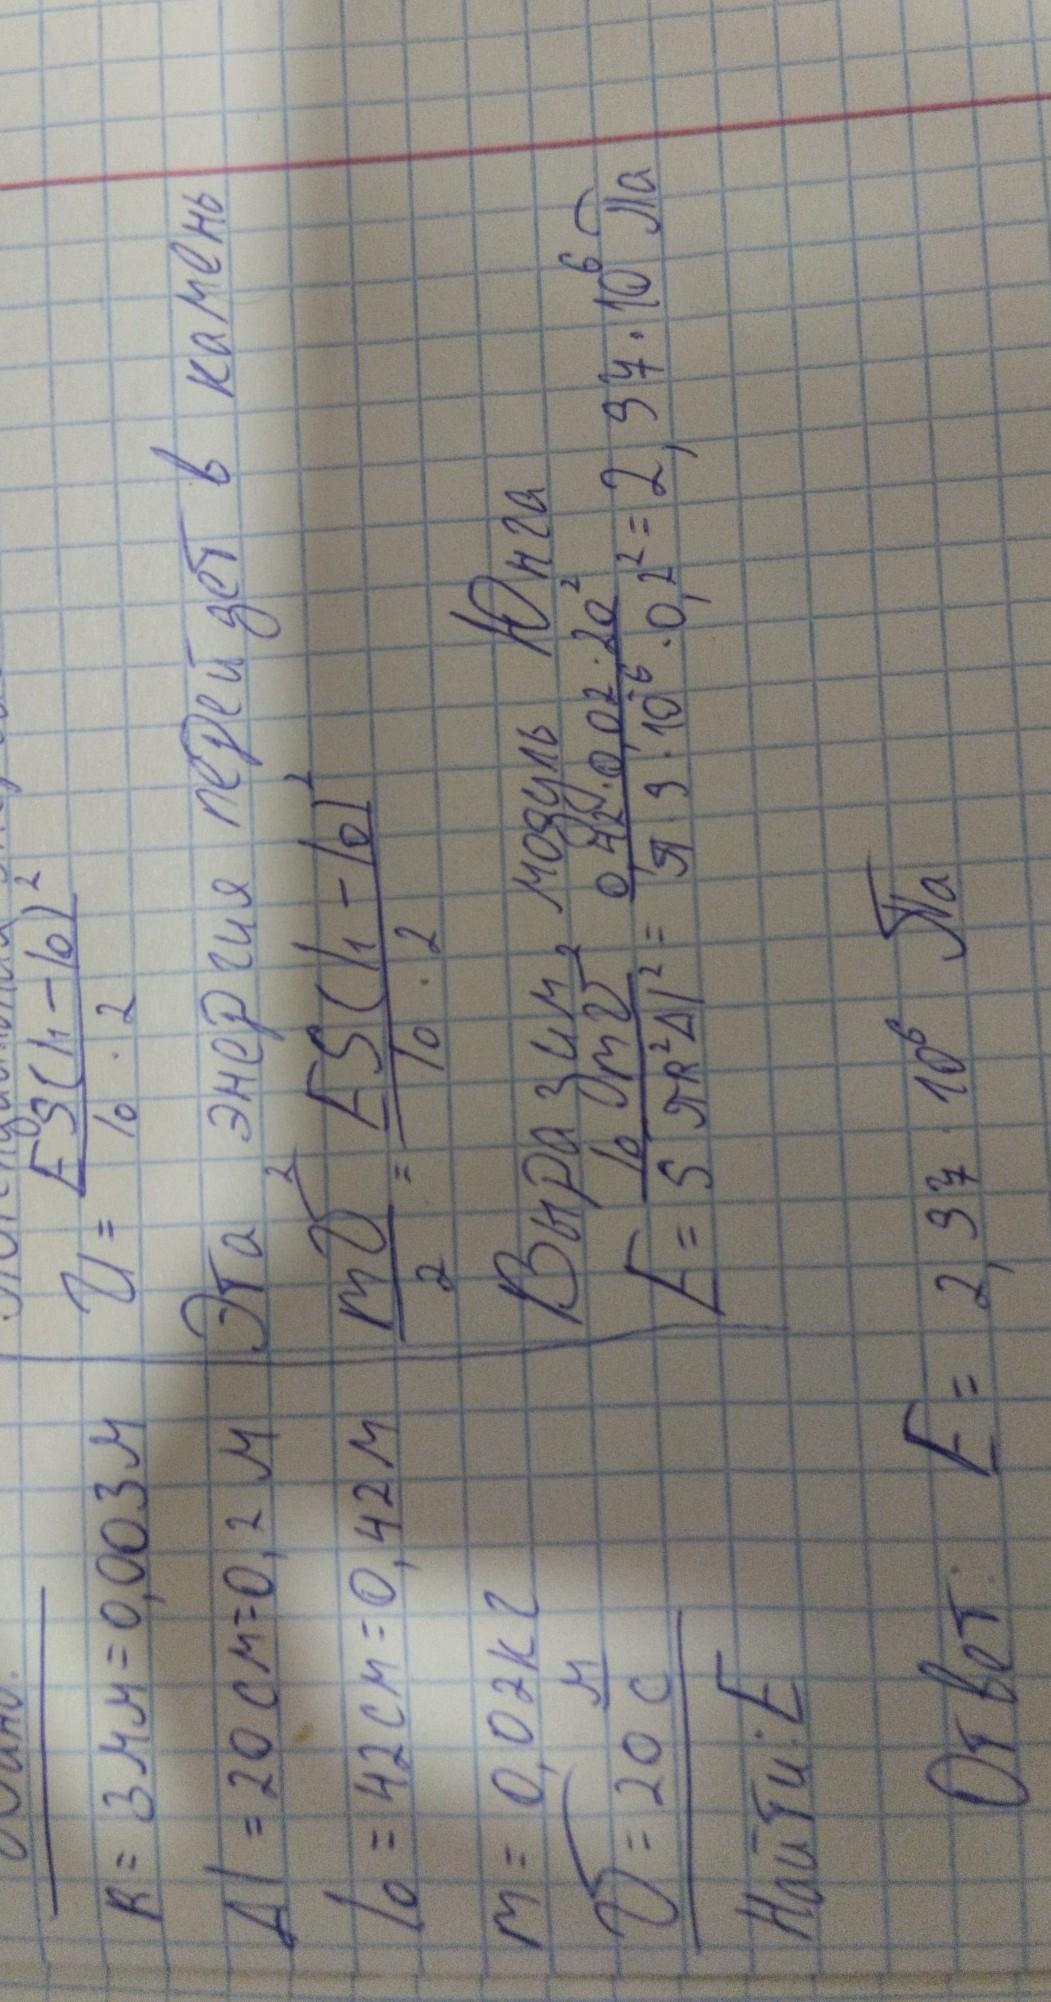 R = 3мм = 0,003м
Δl = 20см = 0,2м
l₀ = 42см = 0,42м
m = 0,02кг
v = 20 м/с
Найти: E
U = ES(l₁ - l₀)² / l₀ · 2
Эта энергия перейдет в камень
mv² / 2 = ES(l₁ - l₀)² / l₀ · 2
Выразим модуль Юнга
E = l₀mv² / SπR²Δl² = 0,42 · 0,02 · 20² / π · 9 · 10⁻⁶ · 0,2² = 2,97 · 10⁶ Па
Ответ: E = 2,97 · 10⁶ Па